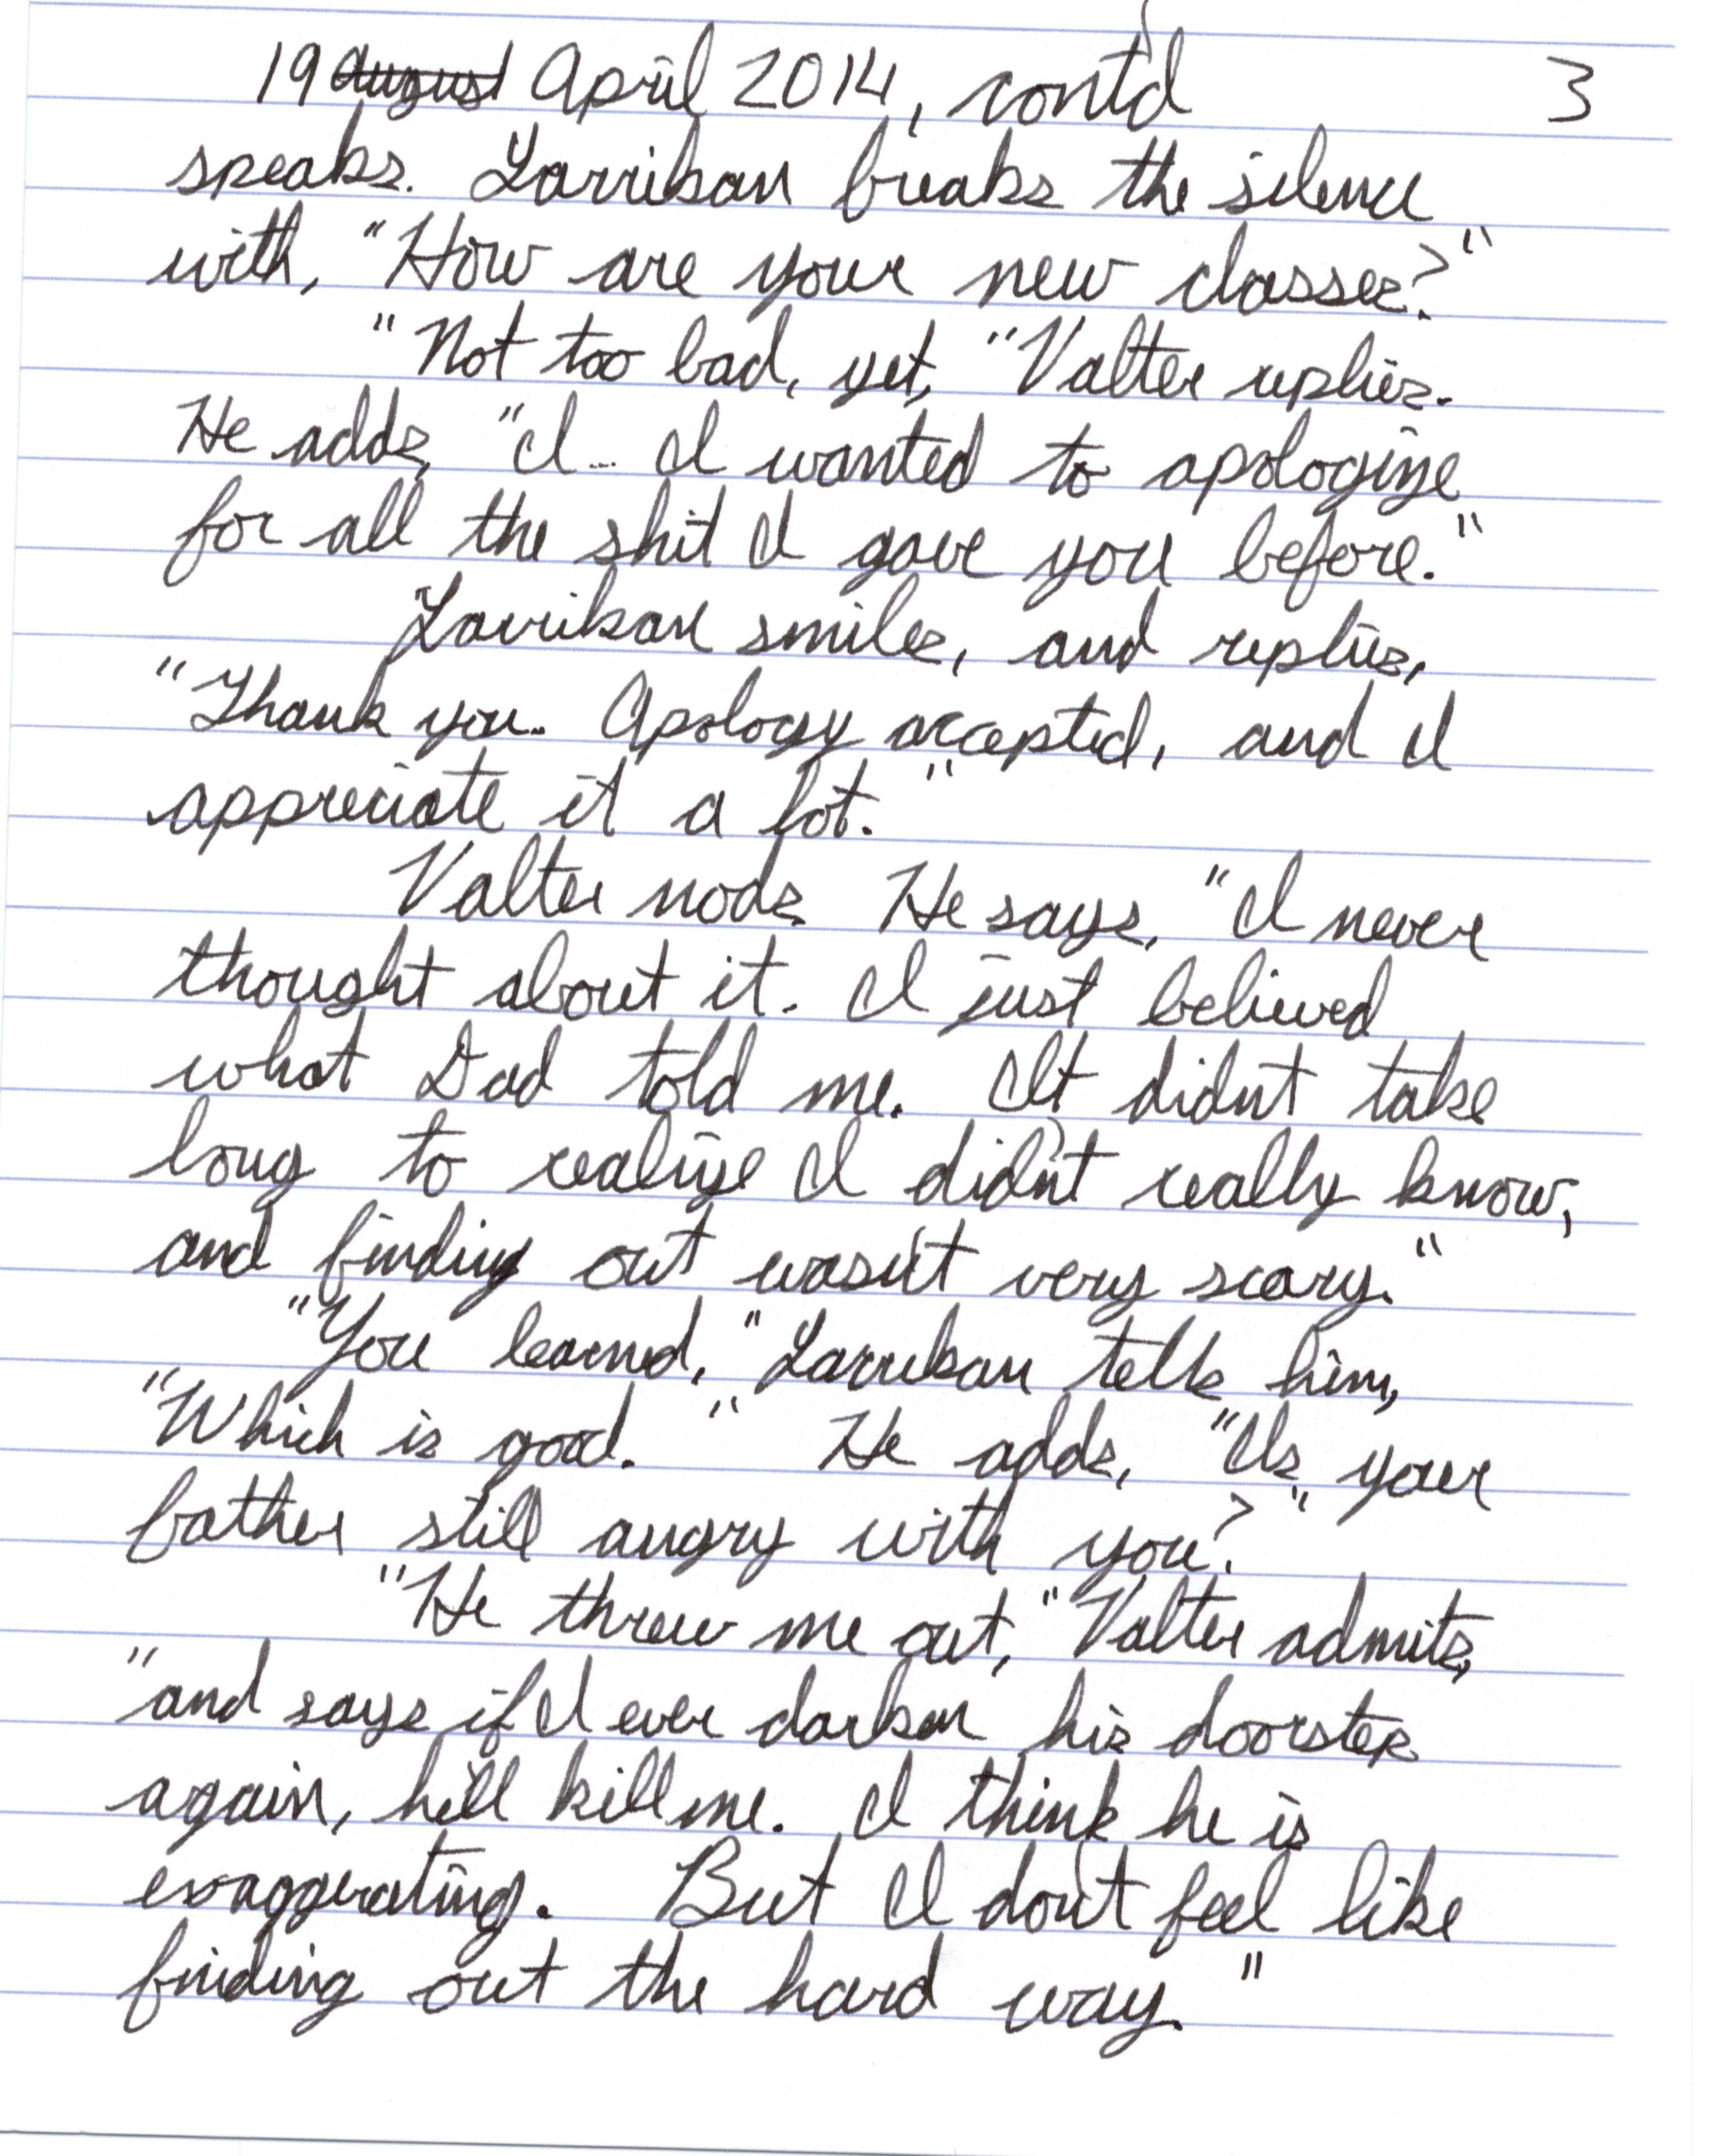 19 august April 2014, cont'd 3
speaks. Larrikan breaks the silence
with, "How are your new classes?"
"Not too bad, yet," Valter replies.
He adds, "I... I wanted to apologize
for all the shit I gave you before."
Larrikan smiles, and replies,
"Thank you. Apology accepted, and I
appreciate it a lot."
Valter nods. He says, "I never
thought about it. I just believed
what Dad told me. It didn't take
long to realize I didn't really know,
and finding out wasn't very scary."
"You learned," Larrikan tells him,
"Which is good." He adds, "Is your
father still angry with you?"
"He threw me out," Valter admits,
"and says if I ever darken his doorstep
again, he'll kill me. I think he is
exaggerating. But I don't feel like
finding out the hard way."